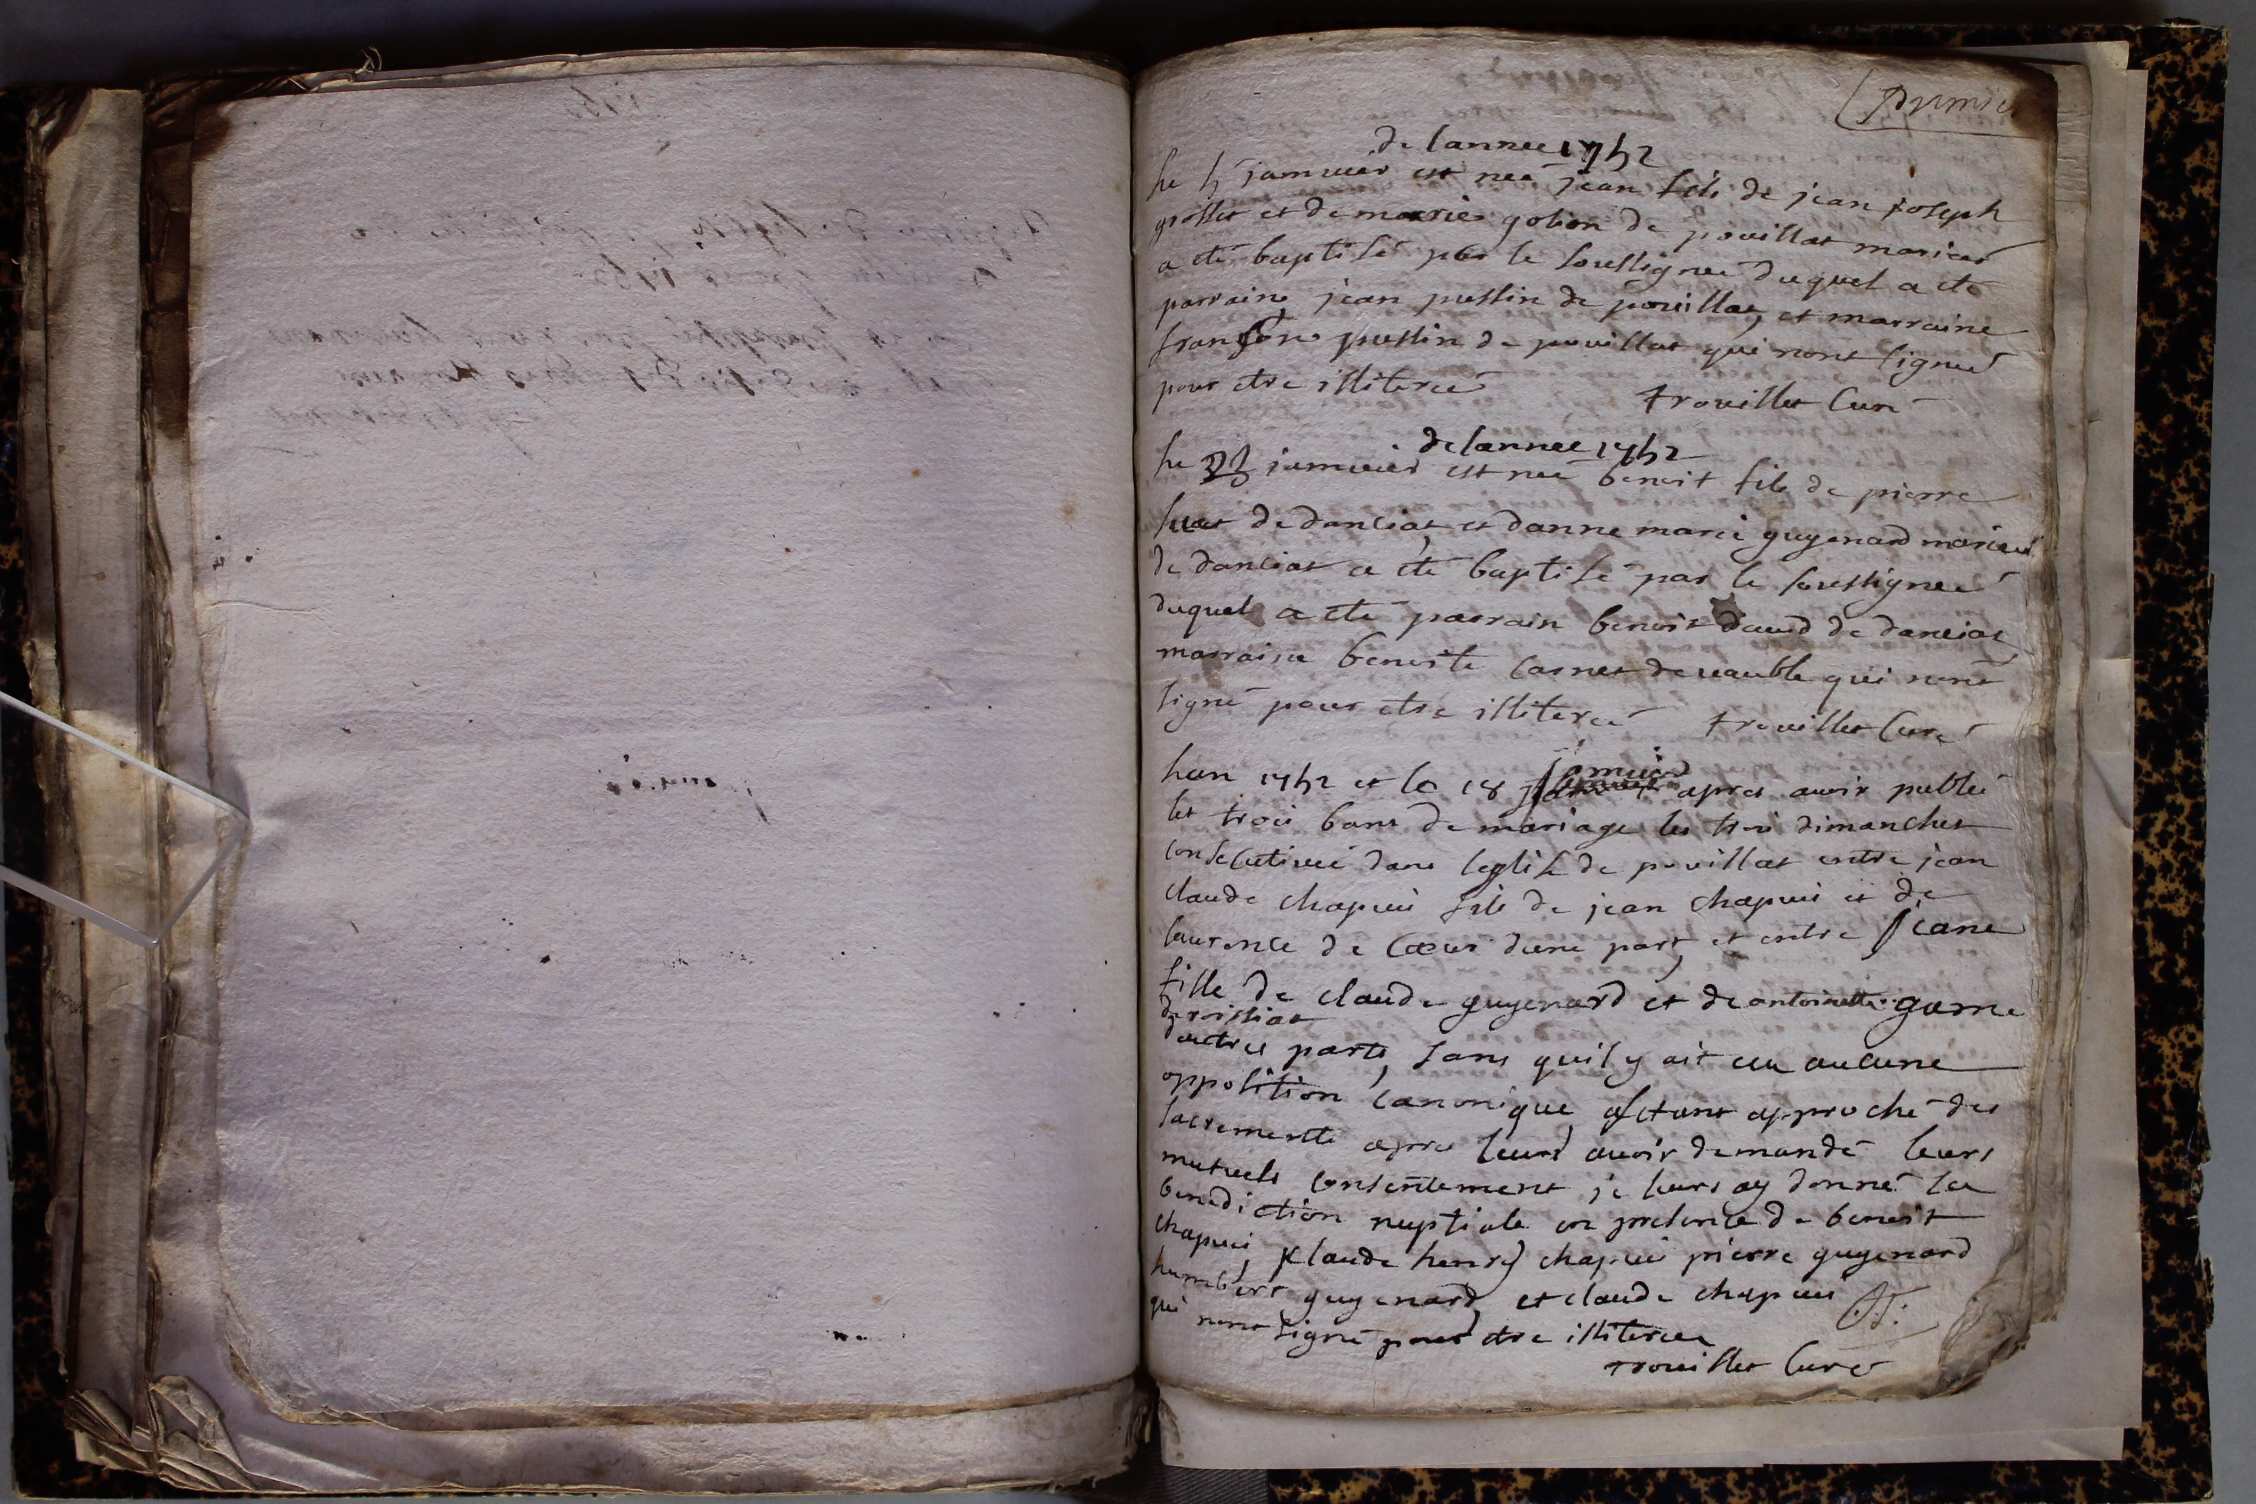 premie
de lannee 1752
le 5 januier est neé jean fils de jean joseph
grosset et de marie gobon de pouillat mariees
a eté baptisé par le soussigneé duquel a eté
parraine jean pussin de pouillat, et marraine
françoise pussin de pouillat qui nont signeé
pour etre illitereé trouillet Curé
de lannee 1752
le januier est neé benoit fils de pierre
huat de danciat, et danne marie guyenard marieés
de danciat a eté baptisé par le soussigneé
duquel a eté parrain benoit dauid de danciat
marraine benoite carnet de uauble qui nont
signé pour etre illitereé trouillet Curé
lan 1752 et le 18 januier apres auoir publié
les trois bans de mariage les trois dimanches
consecutiues dans leglise de pouillat entre jean
claude chapuis fils de jean chapuis et de
laurence de Cœur dune part, et entre jeane
fille de claude guyenard et de antoinette game
de roissiat
dautres parts, sans quil y ait eu aucune
opposition canonique, sestant approché des
sacrements apres leurs auoir demandé leurs
mutuels consentement je leurs ay donné la
benediction nuptiale en presence de benoit
chapuis, claude henry chapuis pierre guyenard
humbert guyenard, et claude chapuis
qui nont signé pour etre illiteree
trouillet Curé